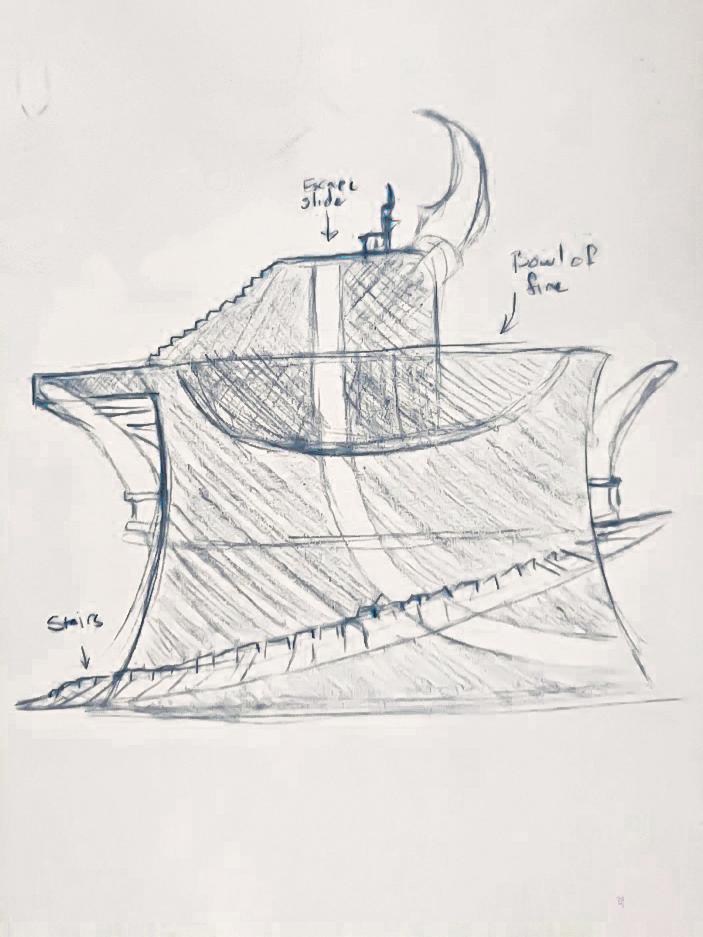 Escape
slide
Bowl of
fire
Stairs